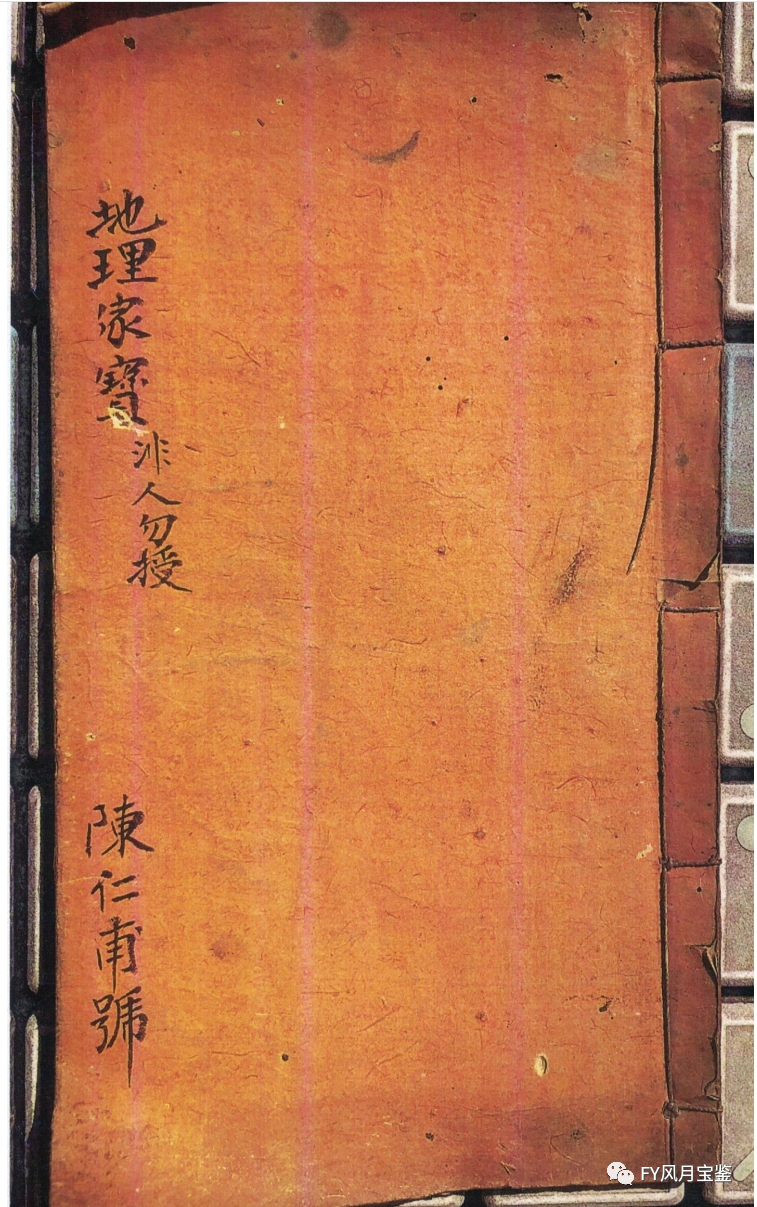 地理家寳
非人勿授
陳仁甫號
FY风月宝鉴